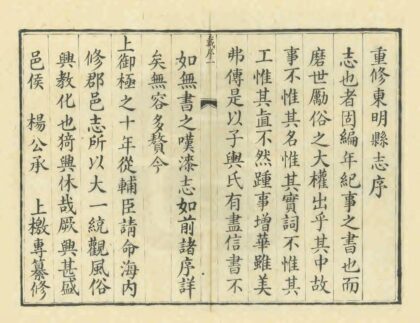 重修東明縣志序
志也者固編年紀事之書也而
磨世勵俗之大權出乎其中故
事不惟其名惟其實詞不惟其
工惟其真不然踵事增華雖美
弗傳是以子輿氏有盡信書不
如無書之嘆漆志如前諸序詳
矣無容多贅今
上御極之十年從輔臣請命海內
修郡邑志所以大一統觀風俗
興教化也猗與休哉厥典甚盛
邑侯楊公承上檄專纂修